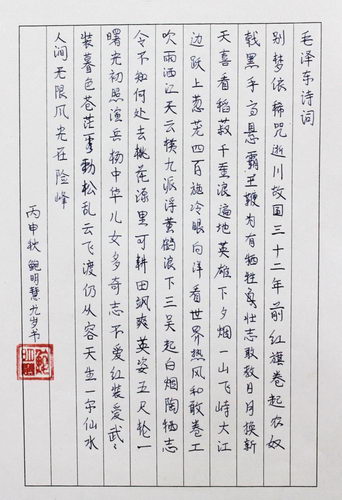 毛泽东诗词
别梦依稀咒逝川故国三十二年前红旗卷起农奴
戟黑手高悬霸王鞭为有牺牲真壮志敢教日月换新
天喜看稻菽千重浪遍地英雄下夕烟一山飞峙大江
边跃上葱茏四百旋冷眼向洋看世界热风和敢卷工
吹雨洒江天云横九派浮黄鹤浪下三吴起白烟陶牺志
令不知何处去桃花源里可耕田飒爽英姿五尺轮一
曙光初照演兵场中华儿女多奇志不爱红装爱武々
装暮色苍茫劲松乱云飞渡仍从容天生一尔仙水
人间无限爪光在险峰
丙申秋 鲍明慧九岁书